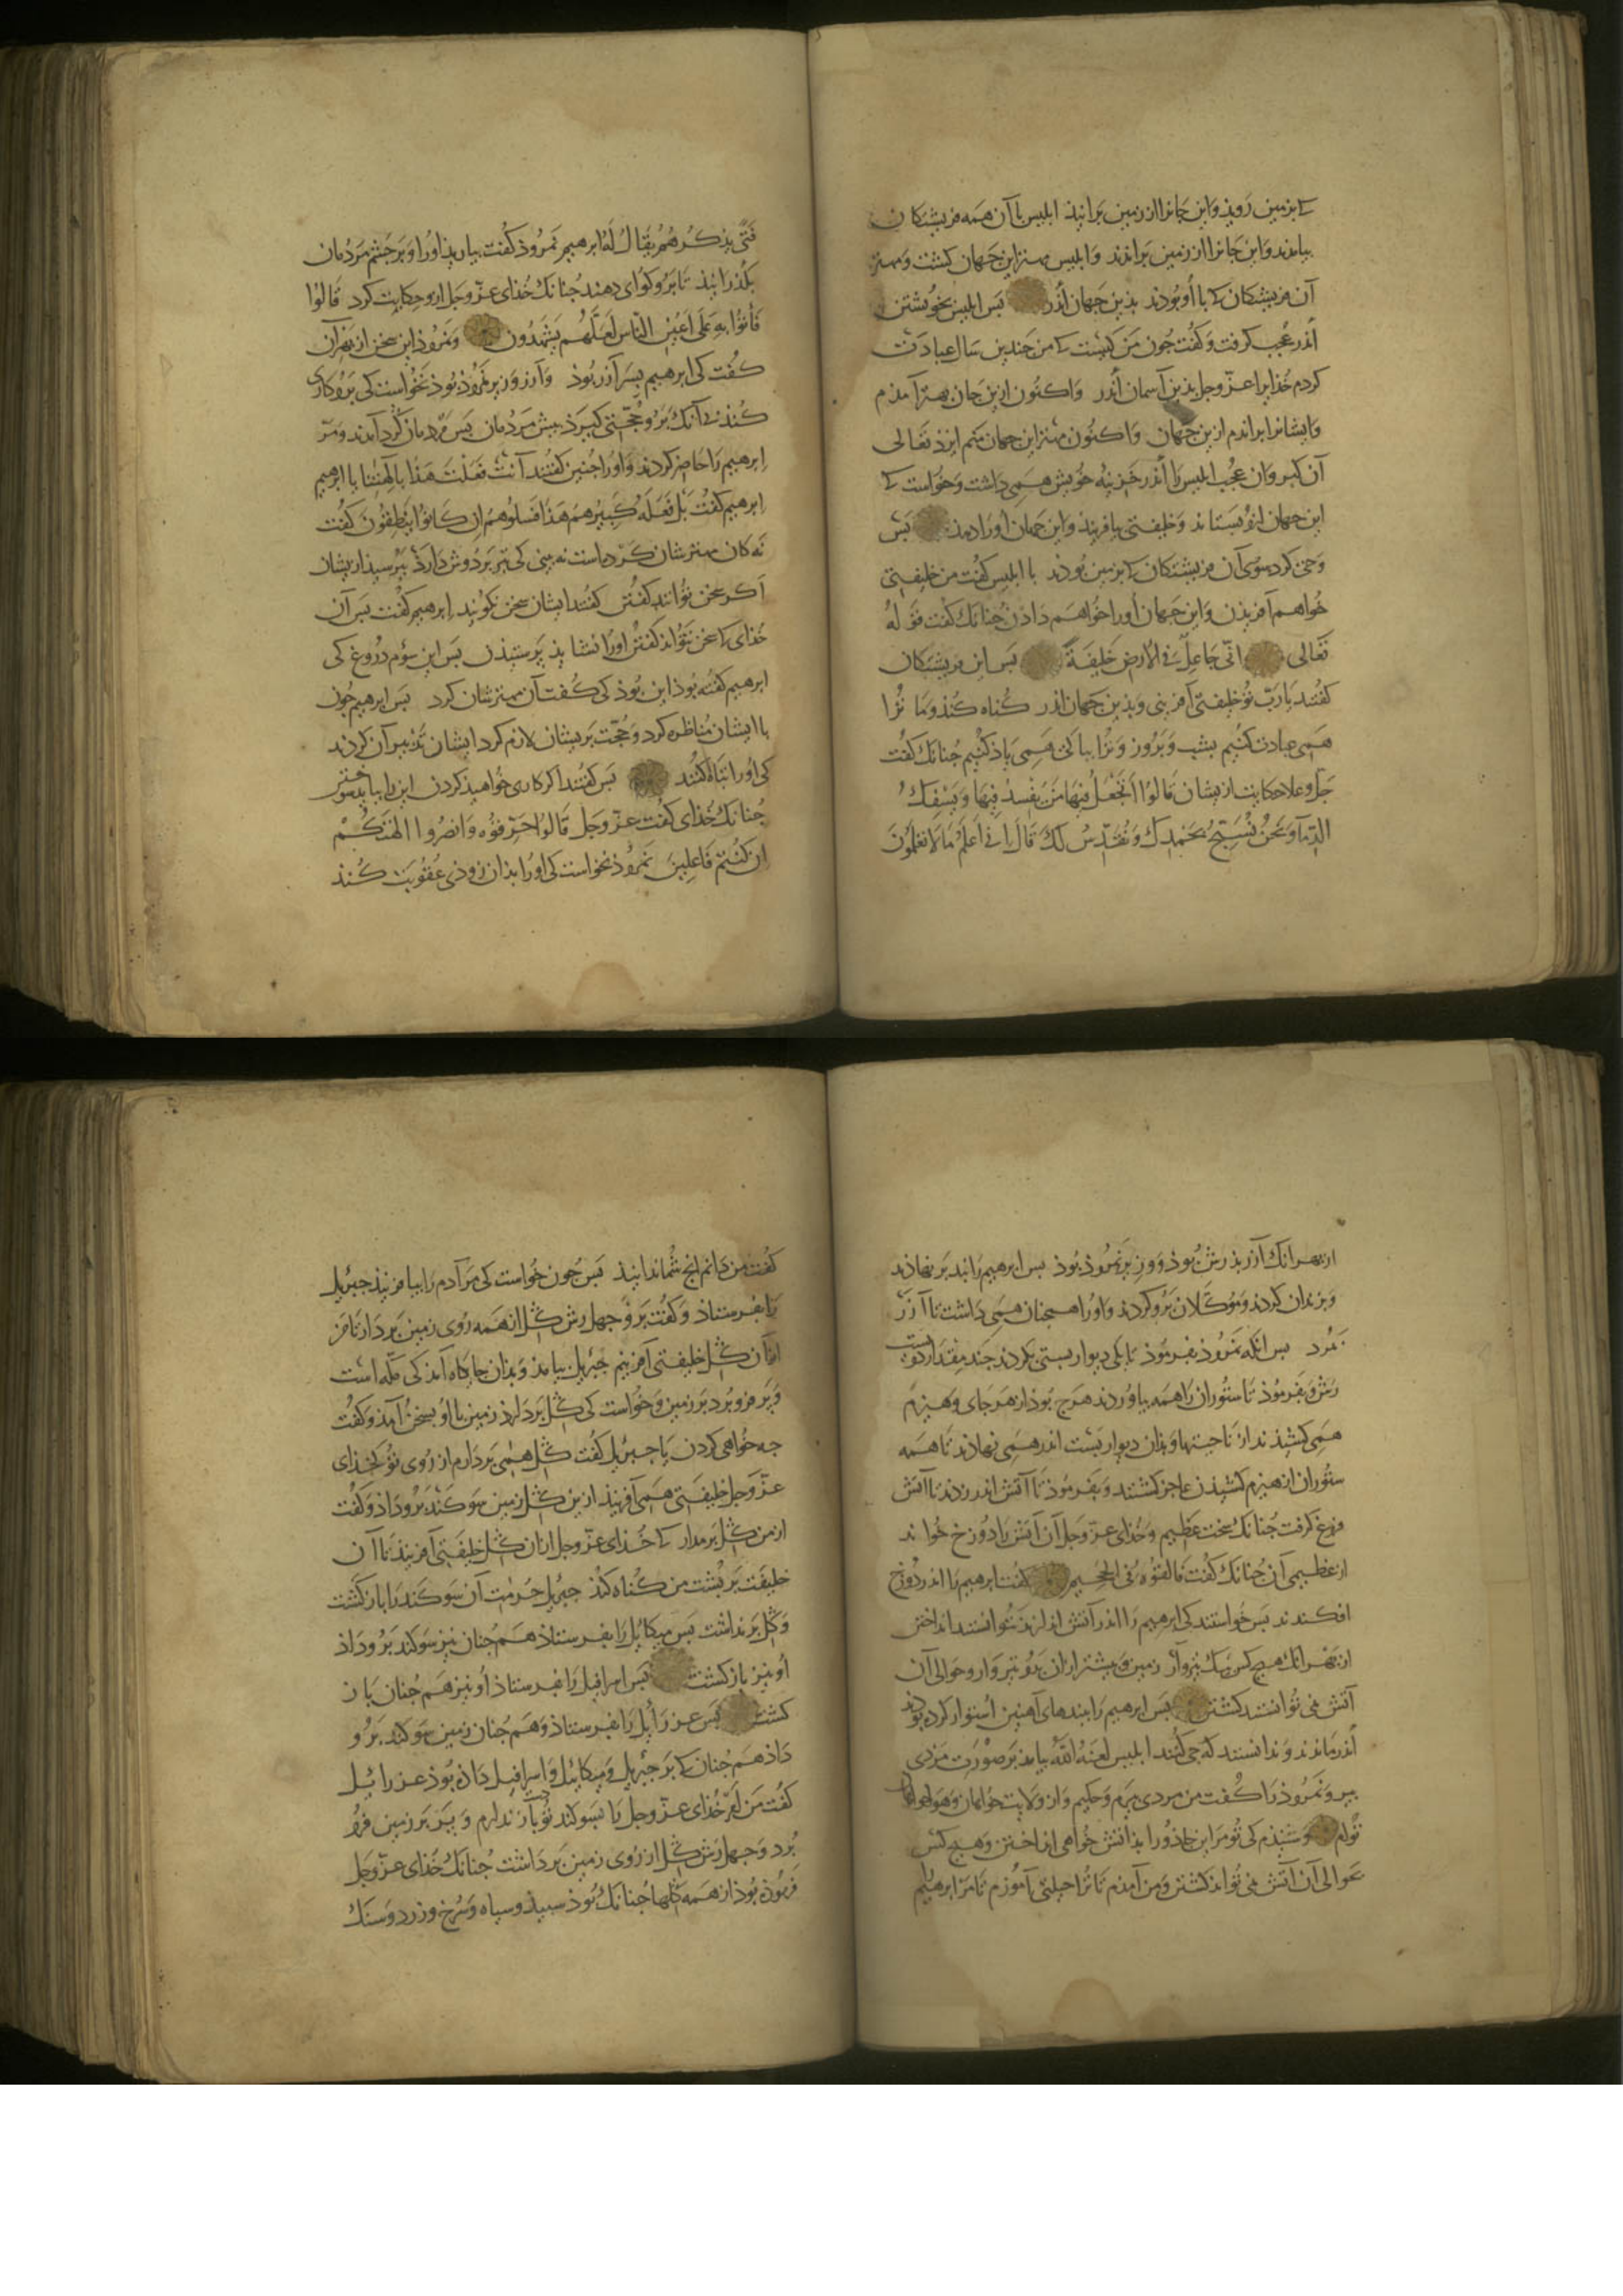 کی بزمین روید و این جانرا از زمین برانید ابلیس با آن همه فریشتکان
بیامدند و این جانرا از زمین براندند و ابلیس مهتر این جهان کشت و مهتر
آن فریشتکان کی با او بودند بذین جهان اندر پس ابلیس بخویشتن
اندر عجب کرفت و کفت جون من کیست کی من جندین سال عبادت
کردم خذایرا عز وجل بذین آسمان اندر واکنون ازین جان بهتر آمذم
وایشانرا براندم ازین جهان واکنون مهتر این جهان منم ایزد تعالی
آن کبر وان عجب ابلیس را اندر خزینه خویش همی داشت و خواست کی
این جهان ازو بستاند و خلیفتی بیافریند و این جهان اورا دهد پس
وحی کرد سوی آن فریشتکان کی بزمین بودند با ابلیس کفت من خلیفتی
خواهم آفریذن و این جهان اورا خواهم داذن جنانک کفت قوله
تعالی انی جاعل فی الارض خلیفة پس این فریشتکان
کفتند یا رب تو خلیفتی آفرینی و بذین جهان اندر کناه کند و ما ترا
همی عبادت کنیم بشب و بروز و ترا بپاکی همی یاذ کنیم جنانک کفت
جل و علا حکایت ازیشان قالوا اتجعل فیها من یفسد فیها و یسفک
الدماء و نحن نسبح بحمدک و نقدس لک قال انی اعلم ما لا تعلمون
فتی یذکرهم یقال له ابرهیم نمروذ کفت بیاریذ اورا و بر جشم مردمان
بکذرانیذ تا برو کوای دهند جنانک خذای عز وجل ازو حکایت کرد قالوا
فأتوا به علی اعین الناس لعلهم یشهدون و نمروذ این سخن از بهر آن
کفت کی ابرهیم پسر آزر بوذ و آزر وزیر نمروذ بوذ نخواست کی برو کاری
کند بی آنک برو حجتی کیرذ پیش مردمان پس مردمان کرد آمدند و مر
ابرهیم را حاضر کردند و اورا جنین کفتند أأنت فعلت هذا بآلهتنا یا ابرهیم
ابرهیم کفت بل فعله کبیرهم هذا فسلوهم ان کانوا ینطقون کفت
نه کان مهترشان کردست نه بینی کی تبر بر دوش دارذ بپرسیذ ازیشان
اکر سخن توانند کفتن کفتند ایشان سخن نکویند ابرهیم کفت پس آن
خذای کی سخن نتواند کفتن اورا نشایذ پرستیذن پس این سوم دروغ کی
ابرهیم کفته بوذ این بوذ کی کفت آن مهترشان کرد پس ابرهیم جون
با ایشان مناظره کرد و حجت بریشان لازم کرد ایشان تدبیر آن کردند
کی اورا تباه کنند پس کفتند اکر کاری خواهیذ کردن این را بباید سوختن
جنانک خذای کفت عز وجل قالوا حرقوه و انصروا الهتکم
ان کنتم فاعلین نمروذ نخواست کی اورا بذان زوذی عقوبت کند
از بهر انک آزر پذرش بوذ و وزیر نمروذ بوذ پس ابرهیم را بند بر نهاذند
و بزندان کردند و موکلان برو کردند و اورا همجنان همی داشت تا آزر
بمرد پس انکه نمروذ بفرموذ تا یکی دیوار بستی بکردند جند مقدار دویست
رش و بفرموذ تا ستوران را همه بیاوردند هرج بوذ از هر جای و هیزم
همی کشیذند از ناحیتها و بذان دیوار بست اندر همی نهاذند تا همه
ستوران از هیزم کشیذن عاجز کشتند و بفرموذ تا آتش اندر زدند تا آتش
فروغ کرفت جنانک سخت عظیم و خذای عز وجل آن آتش را دوزخ خواند
از عظیمی آن جنانک کفت فالقوه فی الجحیم کفت ابرهیم را اندر دوزخ
افکندند پس خواستند کی ابرهیم را اندر آتش اندازند نتوانستند انداختن
از بهر انک هیج کس یک تیروار زمین و بیشتر ازان بدو تیروار و حوالی آن
آتش می نتوانستند کشتن پس ابرهیم را بندهای آهنین استوار کرده بودند
اندر ماندند و ندانستند که جی کنند ابلیس لعنه الله بیامد بر صورت مردی
پیر و نمروذ را کفت من مردی پیرم و حکیم و از ولایت خواهان و هواخواهان
توام و شنیذم کی تو مر این جاذورا بذآتش خواهی انداختن و هیج کس
بحوالی آن آتش می نتواند کشتن و من آمذم تا ترا حیلتی بیاموزم تا مر ابرهیم
کفت من دانم انج شما ندانیذ پس جون خواست کی مر آدم را بیافرینذ جبریل
را بفرستاذ و کفت برو جهل رش کل از همه روی زمین بردار تا من
ازان کل خلیفتی آفرینم جبریل بیامذ و بذان جایکاه آمذ کی مکه است
و پر فرو برد بر زمین و خواست کی کل بردارذ زمین با او بسخن آمذ و کفت
جه خواهی کردن یا جبریل کفت کل همی بردارم از روی تو کی خذای
عز وجل خلیفتی همی آفریند ازین کل زمین سوکند برو داذ و کفت
از من کل برمدار کی خذای عز وجل ازان کل خلیفتی آفریند تا آن
خلیفت بر پشت من کناه کند جبریل حرمت آن سوکند را باز کشت
و کل برنداشت پس میکائیل را بفرستاذ هم جنان نیز سوکند برو داذ
او نیز باز کشت پس اسرافیل را بفرستاذ او نیز هم جنان باز
کشت پس عزرائیل را بفرستاذ و هم جنان زمین سوکند برو
داذ هم جنان کی بر جبریل و میکائیل و اسرافیل داذه بوذ عزرائیل
کفت من امر خذای عز وجل را بسوکند تو باز ندارم و پر بر زمین فرو
برد و جهل رش کل از روی زمین برداشت جنانک خذای عز وجل
فرموذه بوذ از همه کلها جنانک بوذ سپیذ و سیاه و سرخ و زرد و سنک